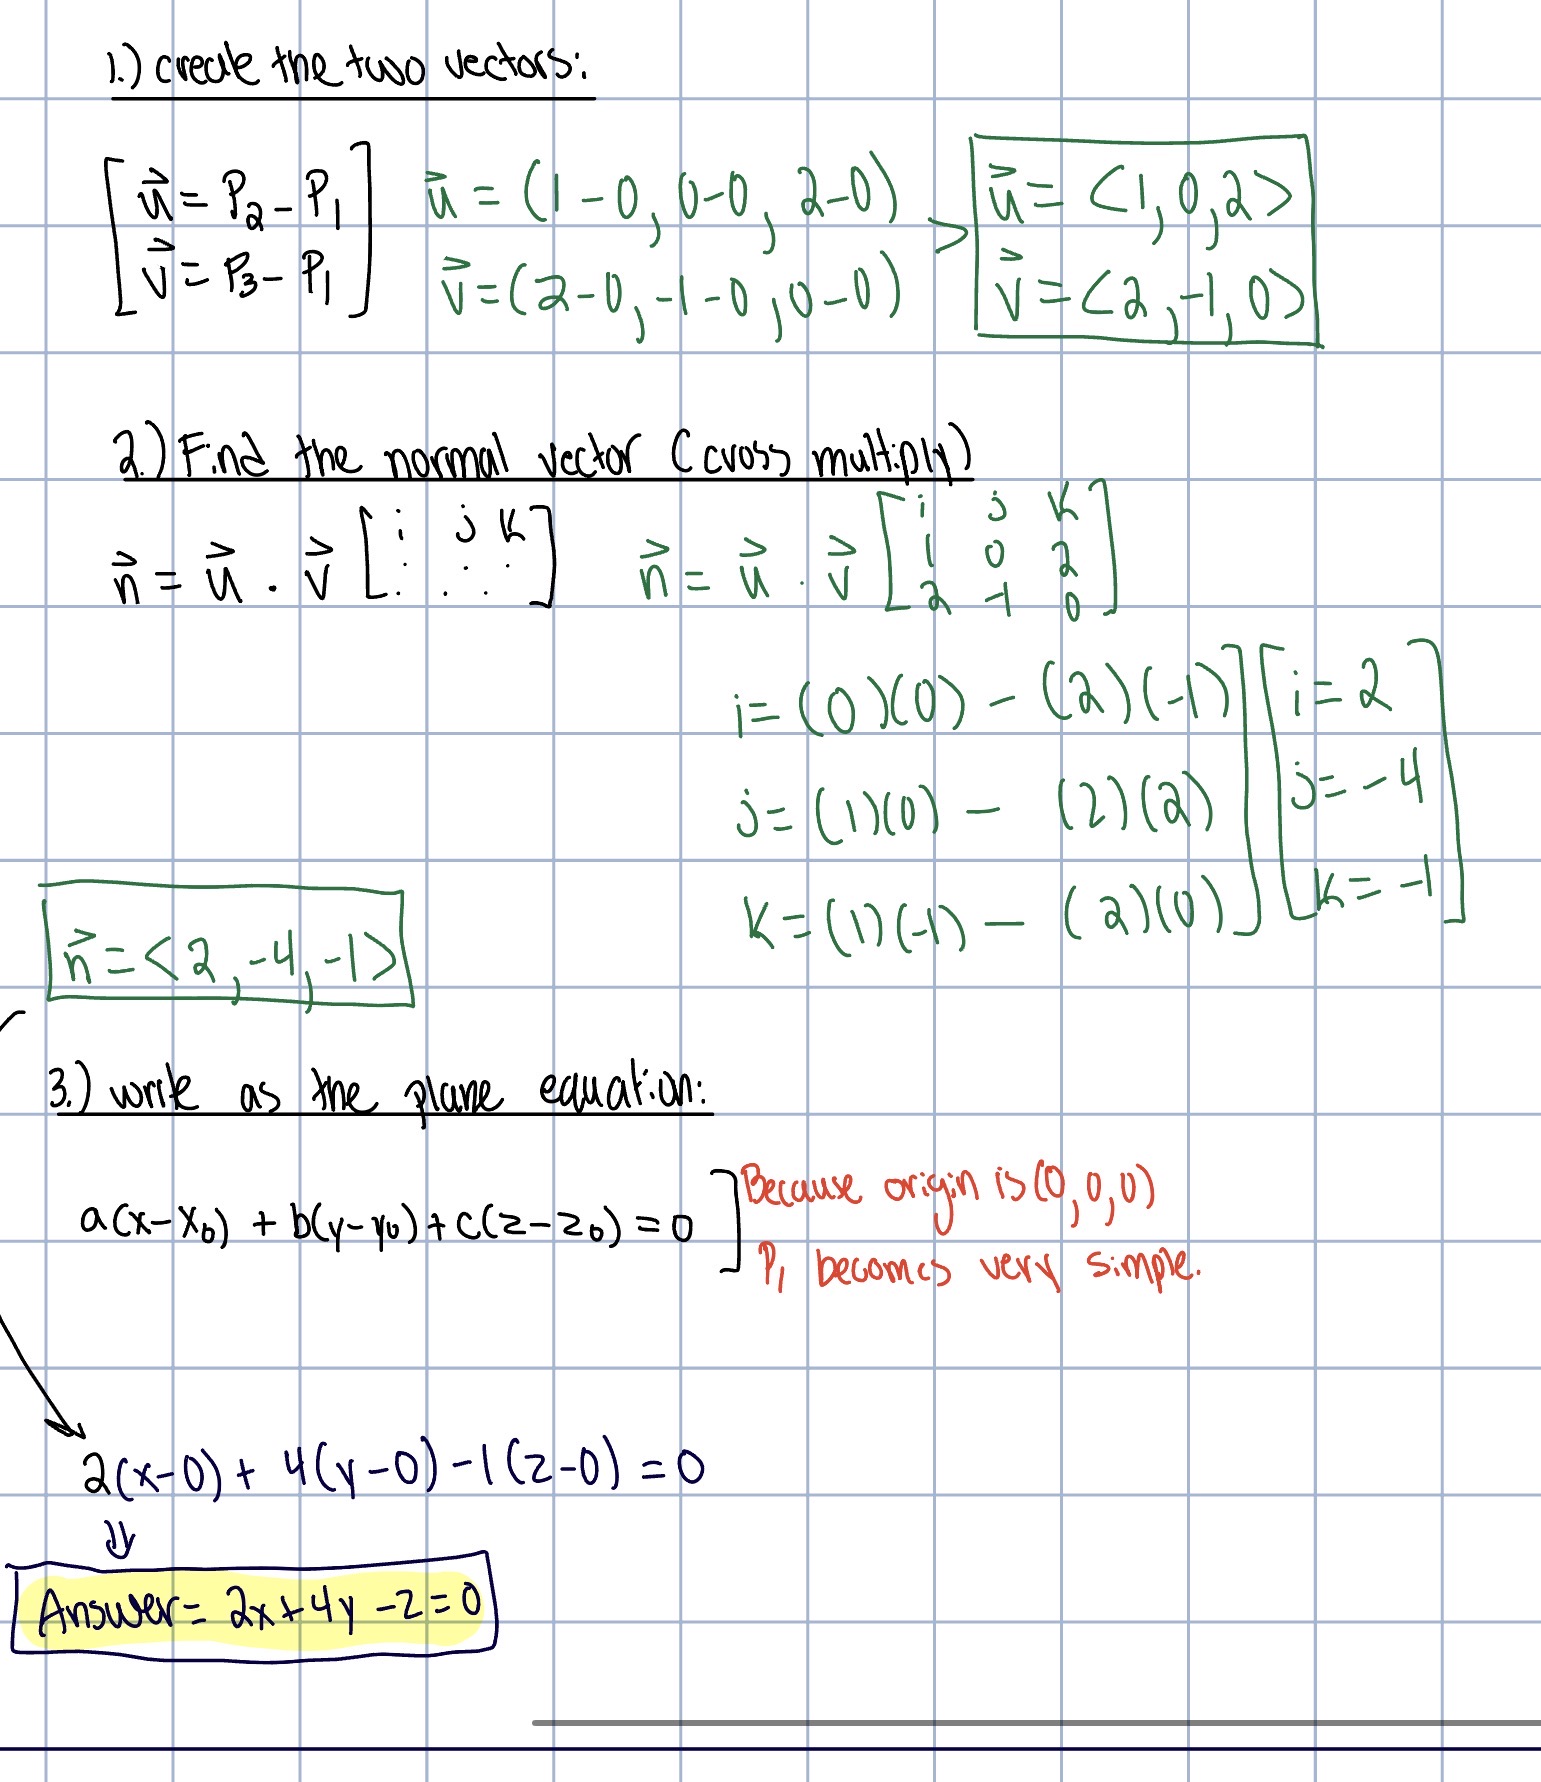 1.) create the two vectors:
[u⃗ = P₂ - P₁
v⃗ = P₃ - P₁]
u⃗ = (1-0, 0-0, 2-0)
v⃗ = (2-0, -1-0, 0-0)
>
u⃗ = <1, 0, 2>
v⃗ = <2, -1, 0>
2.) Find the normal vector (cross multiply)
n⃗ = u⃗ · v⃗ [i j k
. . .
. . .]
n⃗ = u⃗ · v⃗ [i j k
1 0 2
2 -1 0]
i = (0)(0) - (2)(-1)
j = (1)(0) - (2)(2)
k = (1)(-1) - (2)(0)]
[i = 2
j = -4
k = -1]
n⃗ = <2, -4, -1>
3.) write as the plane equation:
a(x-x₀) + b(y-y₀) + c(z-z₀) = 0 ]
Because origin is (0,0,0)
P₁ becomes very simple.
2(x-0) + 4(y-0) - 1(z-0) = 0
⇓
Answer = 2x+4y-z=0